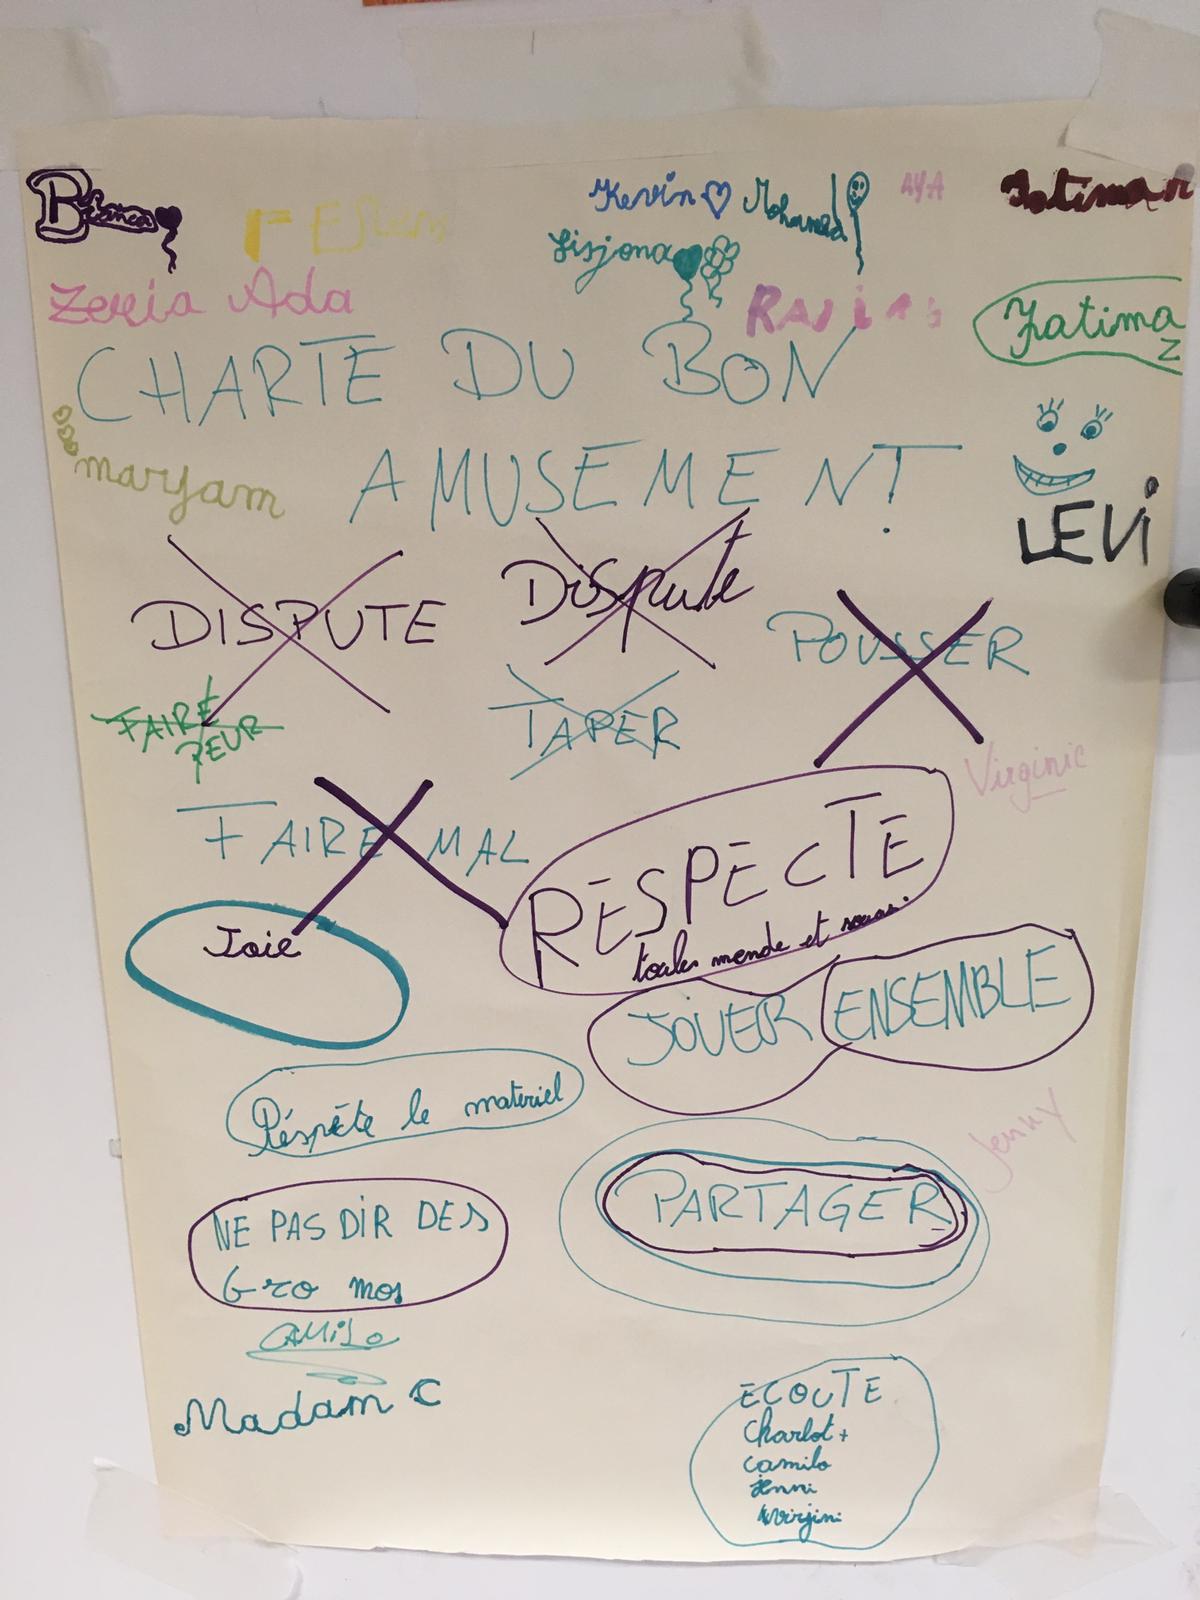 Bianca
Kevin
Mohamed
AYA
Fatima
Lisjona
Ada
Fatima
Z
CHARTE DU BON
maryam
AMUSEMENT
LEVI
DISPUTE
Dispute
POUSSER
FAIRE
PEUR
TAPER
Virginie
FAIRE MAL
RESPECTE
Joie
JOUER ENSEMBLE
Réspète le materiel
Jenny
PARTAGER
NE PAS DIR DES
Gro mos
CAMILO
Madam C
ECOUTE
Charlot +
camilo
Jenni